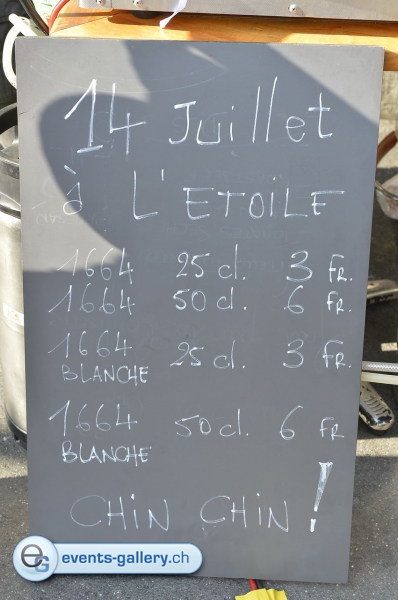 14 Juillet
à L'ETOILE
1664 25 cl. 3 FR.
1664 50 cl. 6 FR.
1664 25 cl. 3 FR.
BLANCHE
1664 50 cl. 6 FR
BLANCHE
CHIN CHIN !
eG events-gallery.ch